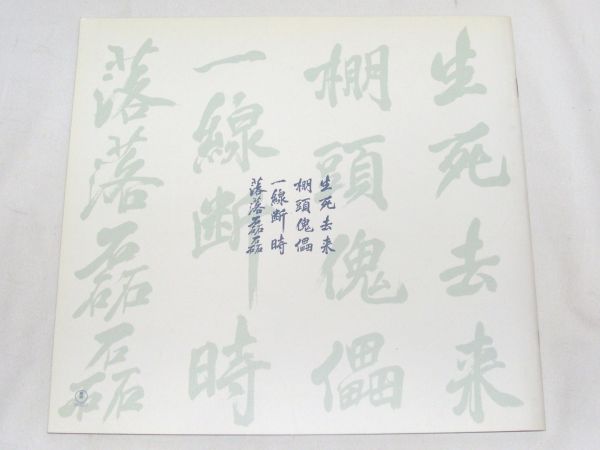 生死去来
棚頭傀儡
一線断時
落落磊磊
生死去来
棚頭傀儡
一線断時
落落磊磊